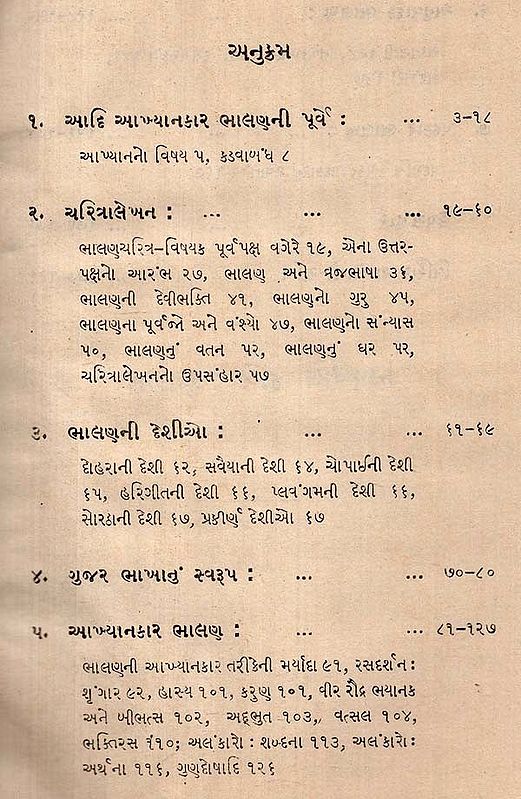 અનુક્રમ
૧. આદિ આખ્યાનકાર ભાલણની પૂર્વે : ... ૩–૧૮
આખ્યાનનો વિષય ૫, કડવાબંધ ૮
૨. ચરિત્રાલેખન : ... ... ... ૧૯–૬૦
ભાલણચરિત્ર–વિષયક પૂર્વપક્ષ વગેરે ૧૯, એના ઉત્તર-
પક્ષનો આરંભ ૨૭, ભાલણ અને વ્રજભાષા ૩૬,
ભાલણની દેવીભક્તિ ૪૧, ભાલણનો ગુરુ ૪૫,
ભાલણના પૂર્વજો અને વંશ્યો ૪૭, ભાલણનો સંન્યાસ
૫૦, ભાલણનું વતન ૫૨, ભાલણનું ઘર ૫૨,
ચરિત્રાલેખનનો ઉપસંહાર ૫૭
૩. ભાલણની દેશીઓ : ... ... ૬૧–૬૯
દોહરાની દેશી ૬૨, સવૈયાની દેશી ૬૪, ચોપાઈની દેશી
૬૫, હરિગીતની દેશી ૬૬, પ્લવંગમની દેશી ૬૬,
સોરઠાની દેશી ૬૭, પ્રકીર્ણ દેશીઓ ૬૭
૪. ગુજર ભાખાનું સ્વરૂપ : ... ... ૭૦–૮૦
૫. આખ્યાનકાર ભાલણ : ... ... ૮૧–૧૨૭
ભાલણની આખ્યાનકાર તરીકેની મર્યાદા ૯૧, રસદર્શન :
શૃંગાર ૯૨, હાસ્ય ૧૦૧, કરુણ ૧૦૧, વીર રૌદ્ર ભયાનક
અને બીભત્સ ૧૦૨, અદ્ભુત ૧૦૩, વત્સલ ૧૦૪,
ભક્તિરસ ૧૧૦; અલંકારો : શબ્દના ૧૧૩, અલંકારો :
અર્થના ૧૧૬, ગુણદોષાદિ ૧૨૬